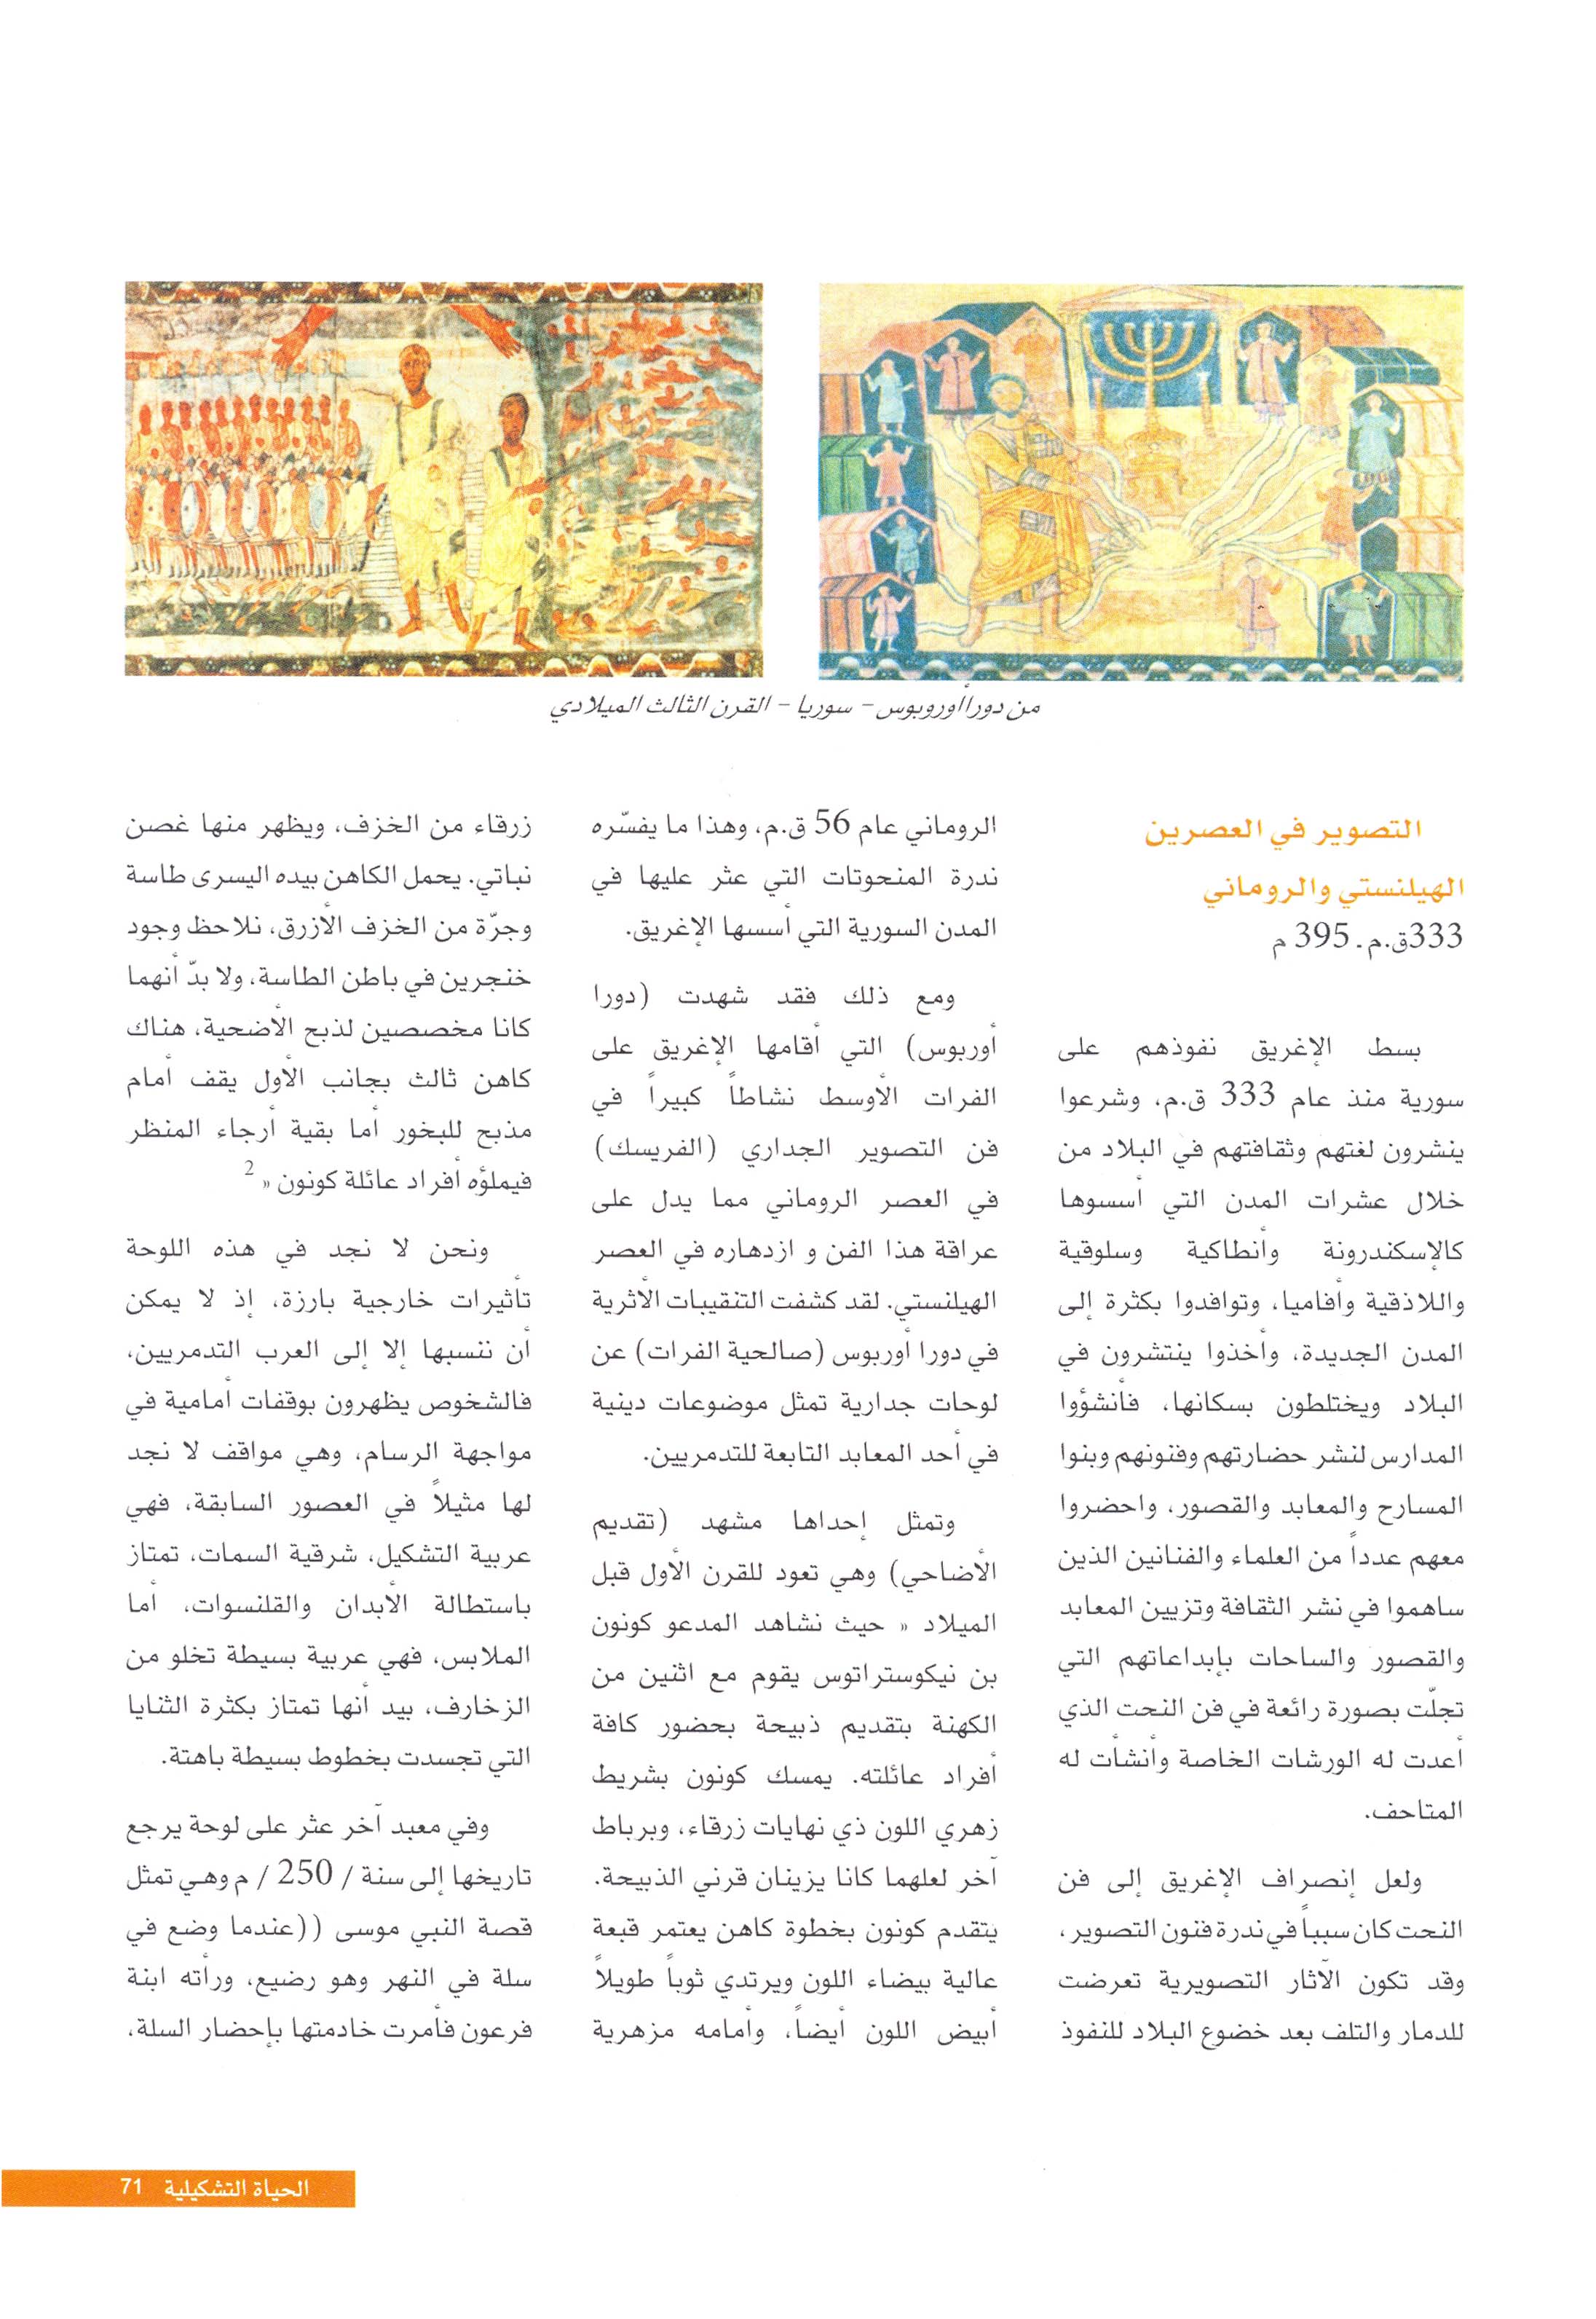 من دورا أوروبوس - سوريا - القرن الثالث الميلادي
التصوير في العصرين
الهيلنستي والروماني
333ق.م. 395 م
بسط الإغريق نفوذهم على
سورية منذ عام 333 ق.م، وشرعوا
ينشرون لغتهم وثقافتهم في البلاد من
خلال عشرات المدن التي أسسوها
كالإسكندرونة وأنطاكية وسلوقية
واللاذقية وأفاميا، وتوافدوا بكثرة إلى
المدن الجديدة، وأخذوا ينتشرون في
البلاد ويختلطون بسكانها، فأنشؤوا
المدارس لنشر حضارتهم وفنونهم وبنوا
المسارح والمعابد والقصور، واحضروا
معهم عدداً من العلماء والفنانين الذين
ساهموا في نشر الثقافة وتزيين المعابد
والقصور والساحات بإبداعاتهم التي
تجلّت بصورة رائعة في فن النحت الذي
أعدت له الورشات الخاصة وأنشأت له
المتاحف.
ولعل إنصراف الإغريق إلى فن
النحت كان سبباً في ندرة فنون التصوير،
وقد تكون الآثار التصويرية تعرضت
للدمار والتلف بعد خضوع البلاد للنفوذ
الروماني عام 56 ق.م، وهذا ما يفسّره
ندرة المنحوتات التي عثر عليها في
المدن السورية التي أسسها الإغريق.
ومع ذلك فقد شهدت (دورا
أوربوس) التي أقامها الإغريق على
الفرات الأوسط نشاطاً كبيراً في
فن التصوير الجداري (الفريسك)
في العصر الروماني مما يدل على
عراقة هذا الفن و ازدهاره في العصر
الهيلنستي. لقد كشفت التنقيبات الأثرية
في دورا أوربوس (صالحية الفرات) عن
لوحات جدارية تمثل موضوعات دينية
في أحد المعابد التابعة للتدمريين.
وتمثل إحداها مشهد (تقديم
الأضاحي) وهي تعود للقرن الأول قبل
الميلاد « حيث نشاهد المدعو كونون
بن نيكوستراتوس يقوم مع اثنين من
الكهنة بتقديم ذبيحة بحضور كافة
أفراد عائلته. يمسك كونون بشريط
زهري اللون ذي نهايات زرقاء، وبرباط
آخر لعلهما كانا يزينان قرني الذبيحة.
يتقدم كونون بخطوة كاهن يعتمر قبعة
عالية بيضاء اللون ويرتدي ثوباً طويلاً
أبيض اللون أيضاً، وأمامه مزهرية
زرقاء من الخزف، ويظهر منها غصن
نباتي. يحمل الكاهن بيده اليسرى طاسة
وجرّة من الخزف الأزرق، نلاحظ وجود
خنجرين في باطن الطاسة، ولا بدّ أنهما
كانا مخصصين لذبح الأضحية، هناك
كاهن ثالث بجانب الأول يقف أمام
مذبح للبخور أما بقية أرجاء المنظر
فيملؤه أفراد عائلة كونون « 2
ونحن لا نجد في هذه اللوحة
تأثيرات خارجية بارزة، إذ لا يمكن
أن ننسبها إلا إلى العرب التدمريين،
فالشخوص يظهرون بوقفات أمامية في
مواجهة الرسام، وهي مواقف لا نجد
لها مثيلاً في العصور السابقة، فهي
عربية التشكيل، شرقية السمات، تمتاز
باستطالة الأبدان والقلنسوات، أما
الملابس، فهي عربية بسيطة تخلو من
الزخارف، بيد أنها تمتاز بكثرة الثنايا
التي تجسدت بخطوط بسيطة باهتة.
وفي معبد آخر عثر على لوحة يرجع
تاريخها إلى سنة / 250 / م وهي تمثل
قصة النبي موسى ((عندما وضع في
سلة في النهر وهو رضيع، ورأته ابنة
فرعون فأمرت خادمتها بإحضار السلة،
الحياة التشكيلية 71